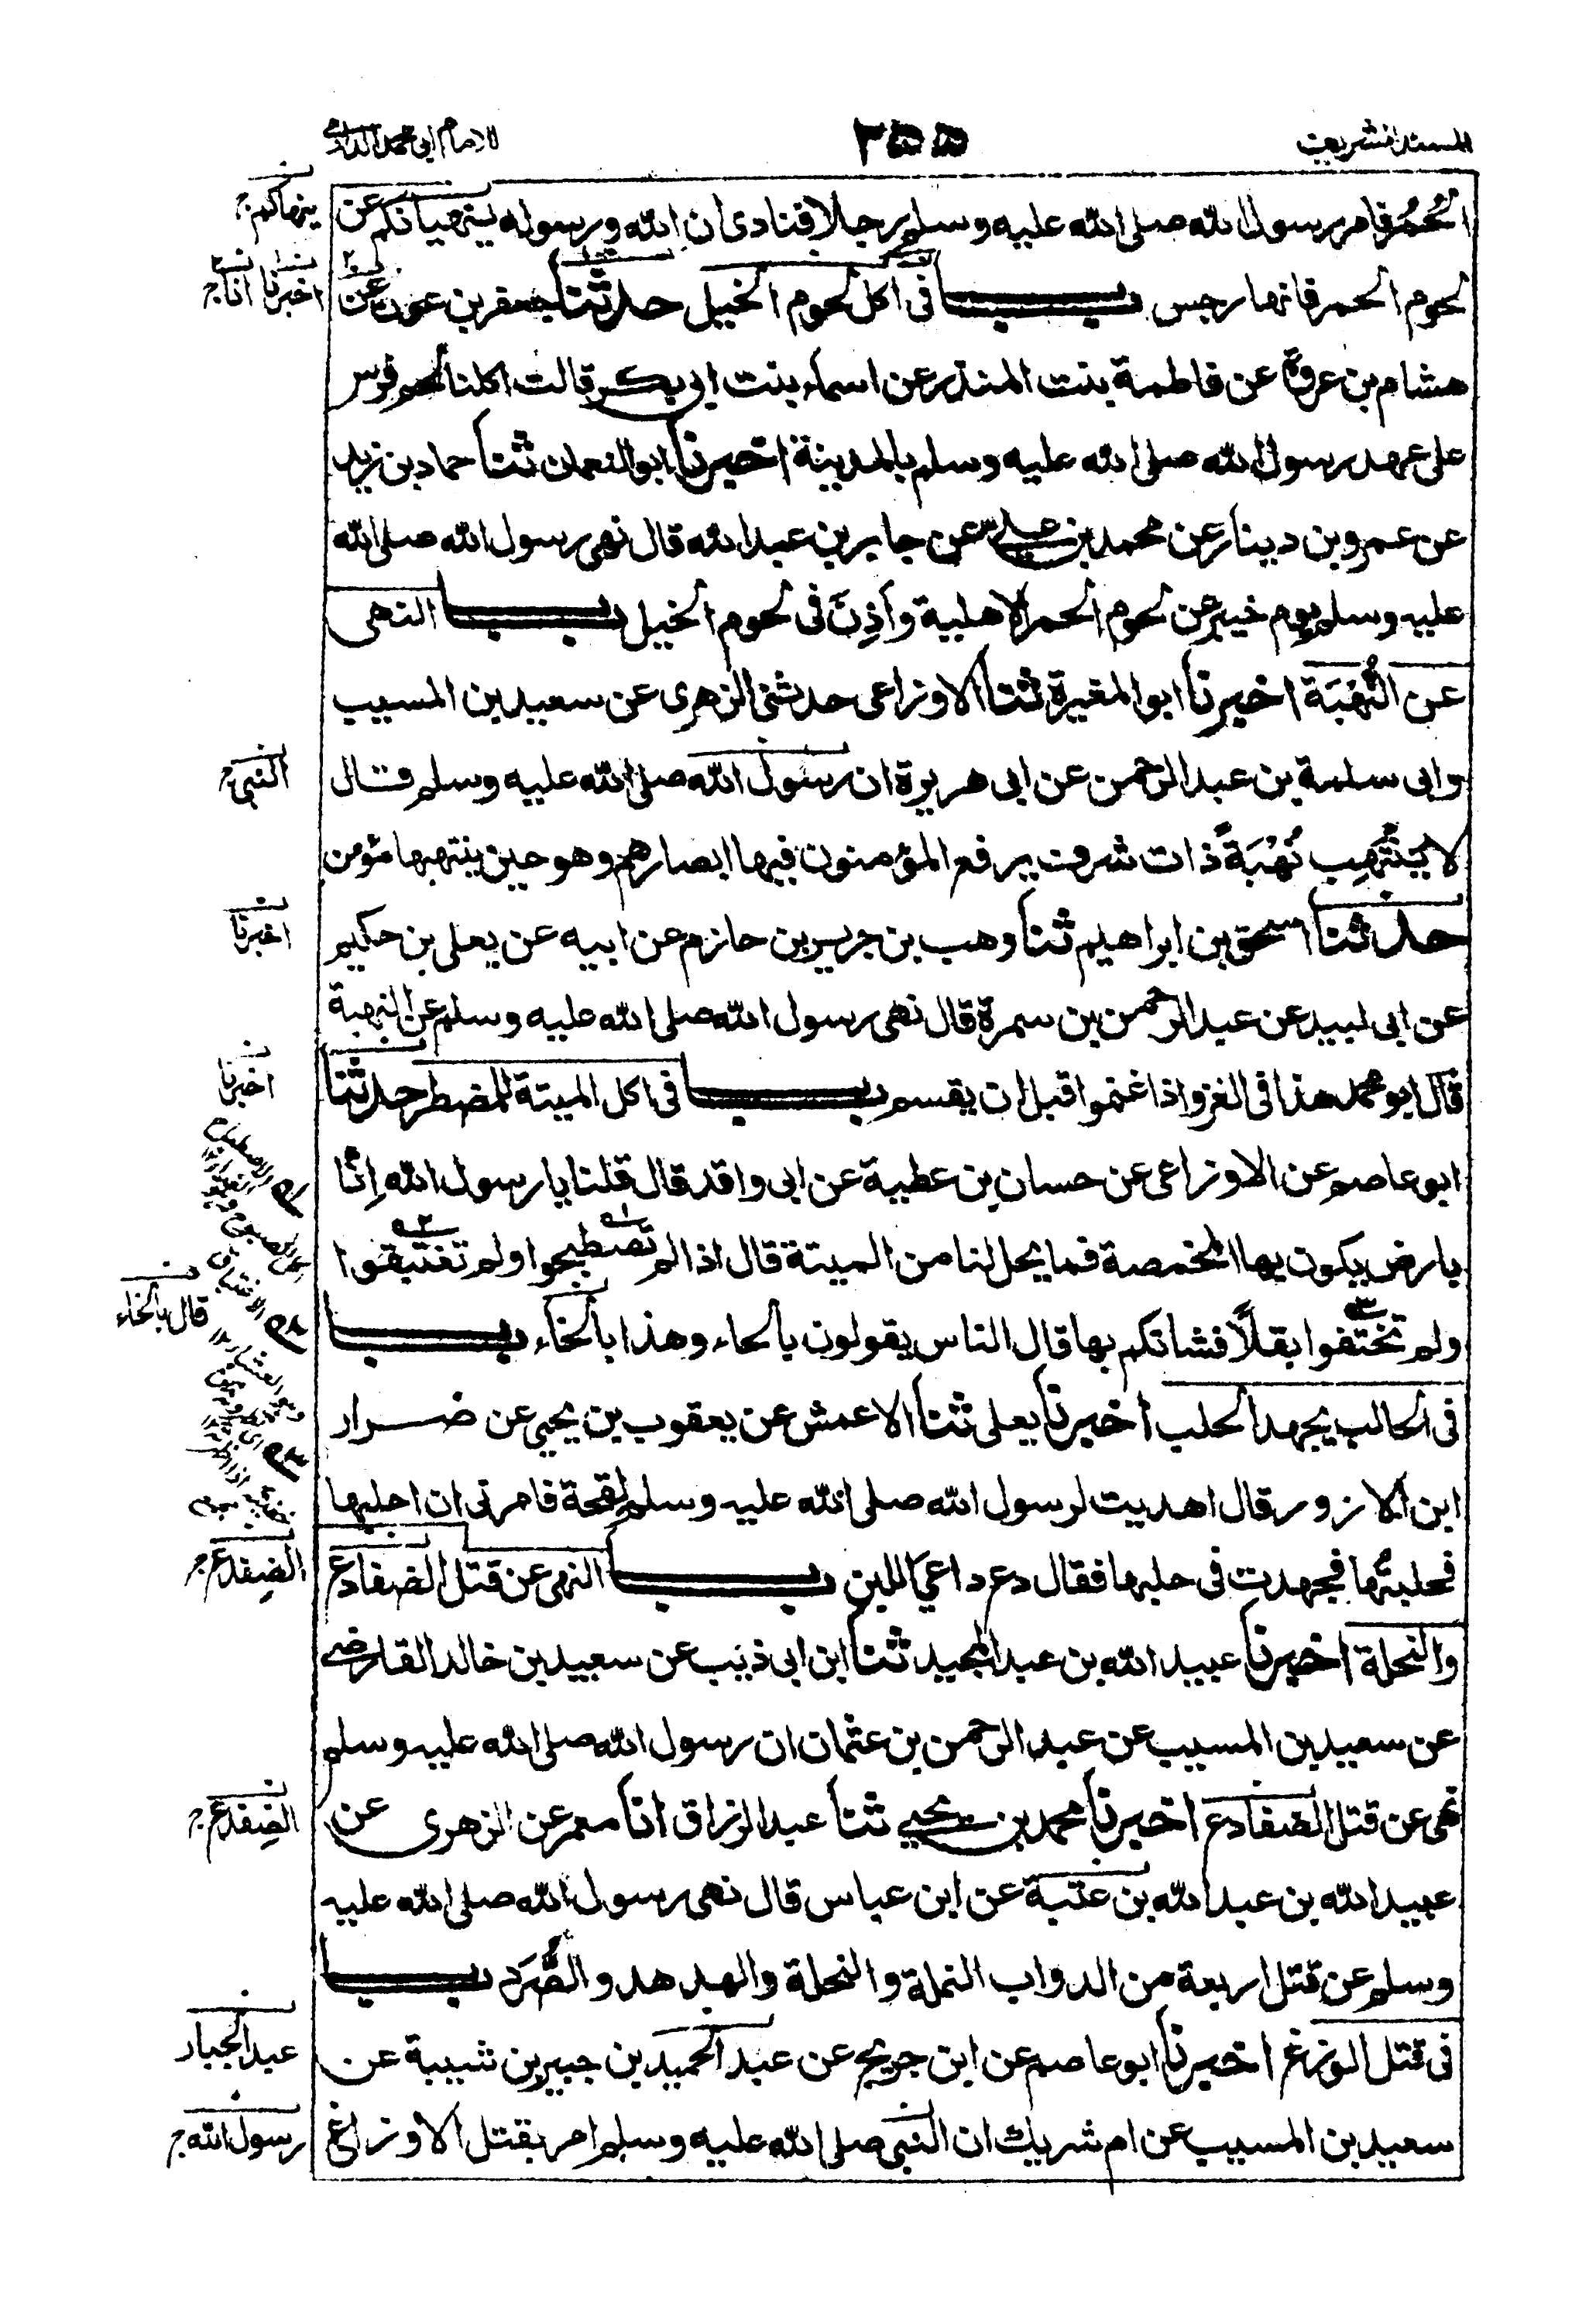 المسند الشريف
٢٥٥
للامام ابى محمد الدارمى
الحُمُر فامر رسول الله صلى الله عليه وسلم رجلا فنادى ان الله ورسوله ينهيانكم عن
لحوم الحمر فانها رجس باب فى اكل لحوم الخيل حدثنا جعفر بن عون عن
هشام بن عروة عن فاطمة بنت المنذر عن اسماء بنت ابى بكر قالت اكلنا لحم فرس
على عهد رسول الله صلى الله عليه وسلم بالمدينة اخبرنا ابو النعمان ثنا حماد بن زيد
عن عمرو بن دينار عن محمد بن على عن جابر بن عبد الله قال نهى رسول الله صلى الله
عليه وسلم يوم خيبر عن لحوم الحمر الاهلية وأَذِنَ فى لحوم الخيل باب النهى
عن النُّهْبَة اخبرنا ابو المغيرة ثنا الاوزاعى حدثنى الزهرى عن سعيد بن المسيب
وابى سلمة بن عبد الرحمن عن ابى هريرة ان رسول الله صلى الله عليه وسلم قال
لا يَنْتَهِب نُهْبَةً ذات شرف يرفع المؤمنون فيها ابصارهم وهو حين ينتهبها مؤمن
حدثنا اسحق بن ابراهيم ثنا وهب بن جرير بن حازم عن ابيه عن يعلى بن حكيم
عن ابى لبيد عن عبد الرحمن بن سمرة قال نهى رسول الله صلى الله عليه وسلم عن النهبة
قال ابو محمد هذا فى الغزو اذا غنموا قبل ان يقسم باب فى اكل الميتة للمضطر حدثنا
ابو عاصم عن الاوزاعى عن حسان بن عطية عن ابى واقد قال قلنا يا رسول الله اِنَّا
بارض يكون بها المخمصة فما يحل لنا من الميتة قال اذا لم تصطبحوا ولم تغتبقوا
ولم تختفوا بقلاً فشانكم بها قال الناس يقولون بالحاء وهذا بالخاء باب
فى الحالب يجهد الحلب اخبرنا يعلى ثنا الاعمش عن يعقوب بن يحيى عن ضرار
ابن الازور قال اهديت لرسول الله صلى الله عليه وسلم لقحة فامرنى ان احلبها
فحلبتُها فجهدت فى حلبها فقال دع داعىَ اللبن باب النهى عن قتل الضفادع
والنحلة اخبرنا عبيد الله بن عبد المجيد ثنا ابن ابى ذئب عن سعيد بن خالد القارضى
عن سعيد بن المسيب عن عبد الرحمن بن عثمان ان رسول الله صلى الله عليه وسلم
نهى عن قتل الضفادع اخبرنا محمد بن يحيى ثنا عبد الرزاق انا معمر عن الزهرى عن
عبيد الله بن عبد الله بن عتبة عن ابن عباس قال نهى رسول الله صلى الله عليه
وسلم عن قتل اربعة من الدواب النملة والنحلة والهدهد والصُّرَد باب
فى قتل الوزغ اخبرنا ابو عاصم عن ابن جريج عن عبد الحميد بن جبير بن شيبة عن
سعيد بن المسيب عن ام شريك ان النبى صلى الله عليه وسلم امر بقتل الاوزاغ
ينهاكم
اخبرنا انا
النبى
اخبرنا
اخبرنا
قال بالخاء
الضِفدع
الضِفدع
عبد الجبار
رسول الله